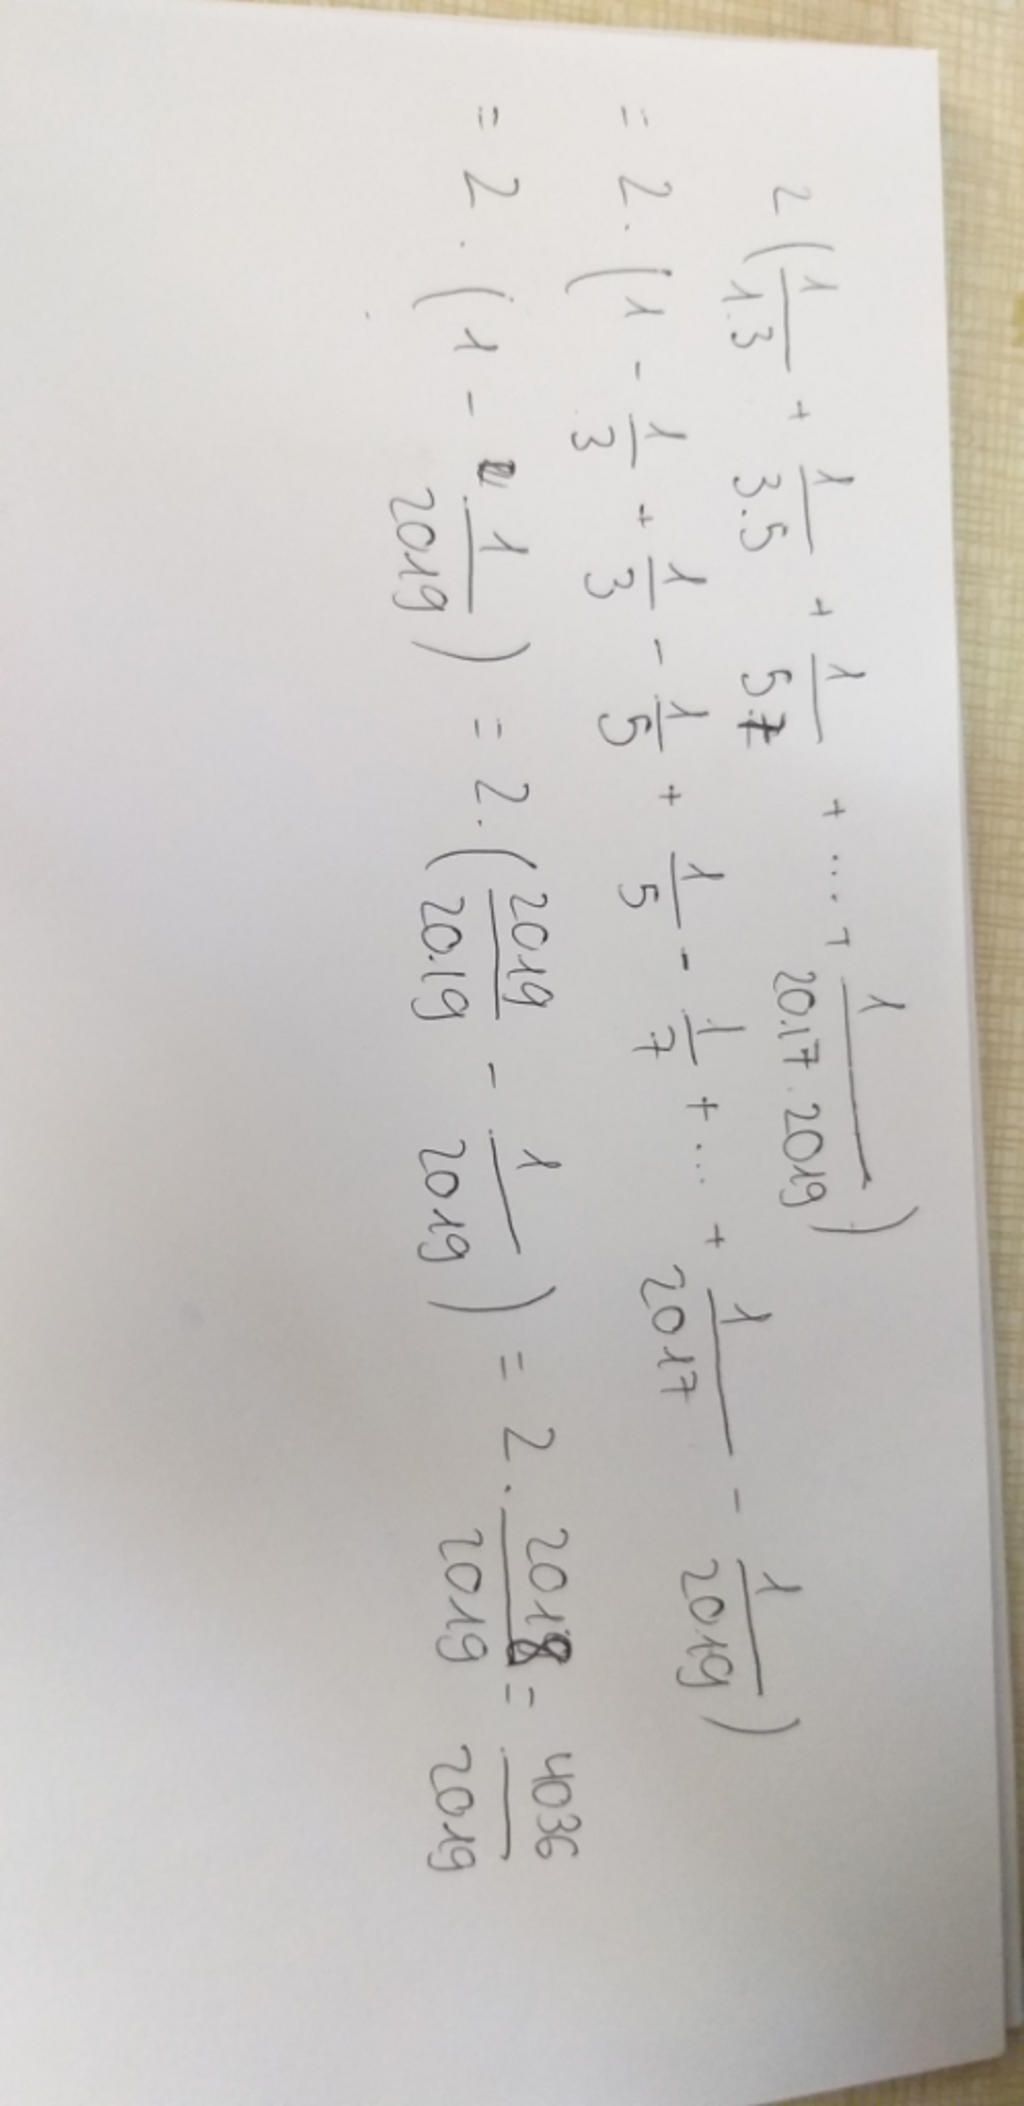 2 ( 1/1.3 + 1/3.5 + 1/5.7 + ... + 1/2017.2019 )
= 2 . ( 1 - 1/3 + 1/3 - 1/5 + 1/5 - 1/7 + ... + 1/2017 - 1/2019 )
= 2 . ( 1 - 1/2019 ) = 2 . ( 2019/2019 - 1/2019 ) = 2 . 2018/2019 = 4036/2019